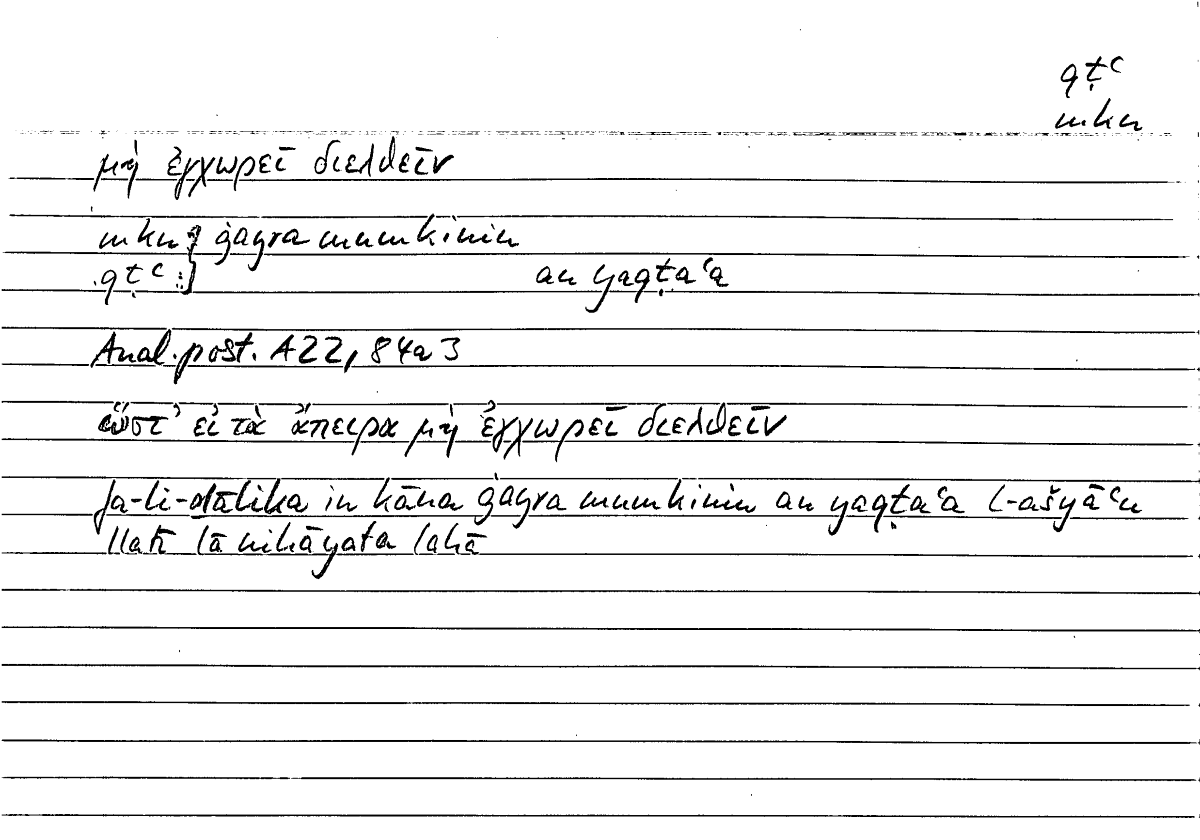 qṭʿ
mkn
μὴ ἐγχωρεῖ διελθεῖν
mkn } ġayra mumkinin
qṭʿ : } an yaqṭaʿa
Anal. post. A22, 84a3
ὥστ’ εἰ τὰ ἄπειρα μὴ ἐγχωρεῖ διελθεῖν
fa-li-ḏālika in kāna ġayra mumkinin an yaqṭaʿa l-ašyāʿu
llatī lā nihāyata lahā